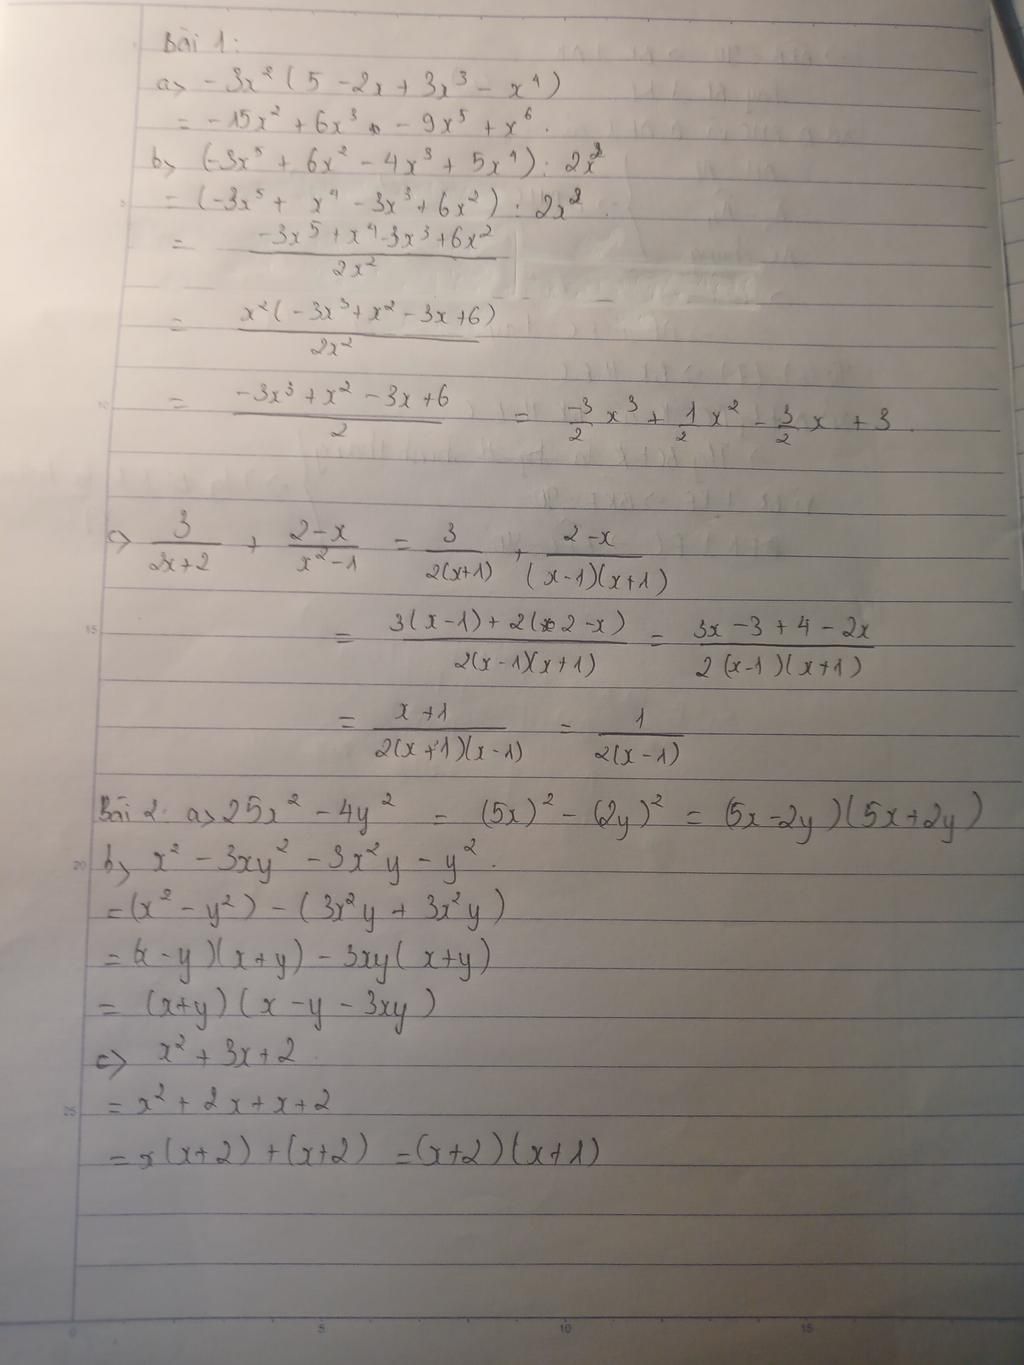 Bài 1:
a> -3x² ( 5 - 2x + 3x³ - x⁴ )
= -15x² + 6x³ - 9x⁵ + x⁶.
b> (-3x⁵ + 6x² - 4x³ + 5x⁴) : 2x²
= (-3x⁵ + x⁴ - 3x³ + 6x²) : 2x².
= (-3x⁵ + x⁴ - 3x³ + 6x²)/(2x²)
= (x²(-3x³ + x² - 3x + 6))/(2x²)
= (-3x³ + x² - 3x + 6)/2 = -3/2 x³ + 1/2 x² - 3/2 x + 3.
c> 3/(2x+2) + (2-x)/(x²-1) = 3/(2(x+1)) + (2-x)/((x-1)(x+1))
= (3(x-1) + 2(2-x))/(2(x-1)(x+1)) = (3x - 3 + 4 - 2x)/(2(x-1)(x+1))
= (x+1)/(2(x+1)(x-1)) = 1/(2(x-1))
Bài 2: a> 25x² - 4y² = (5x)² - (2y)² = (5x-2y)(5x+2y)
b> x² - 3xy² - 3x²y - y².
= (x² - y²) - (3x²y + 3x²y)
= (x - y)(x+y) - 3xy(x+y)
= (x+y)(x - y - 3xy)
c> x² + 3x + 2.
= x² + 2x + x + 2
= x(x+2) + (x+2) = (x+2)(x+1)
20
25
0 5 10 15